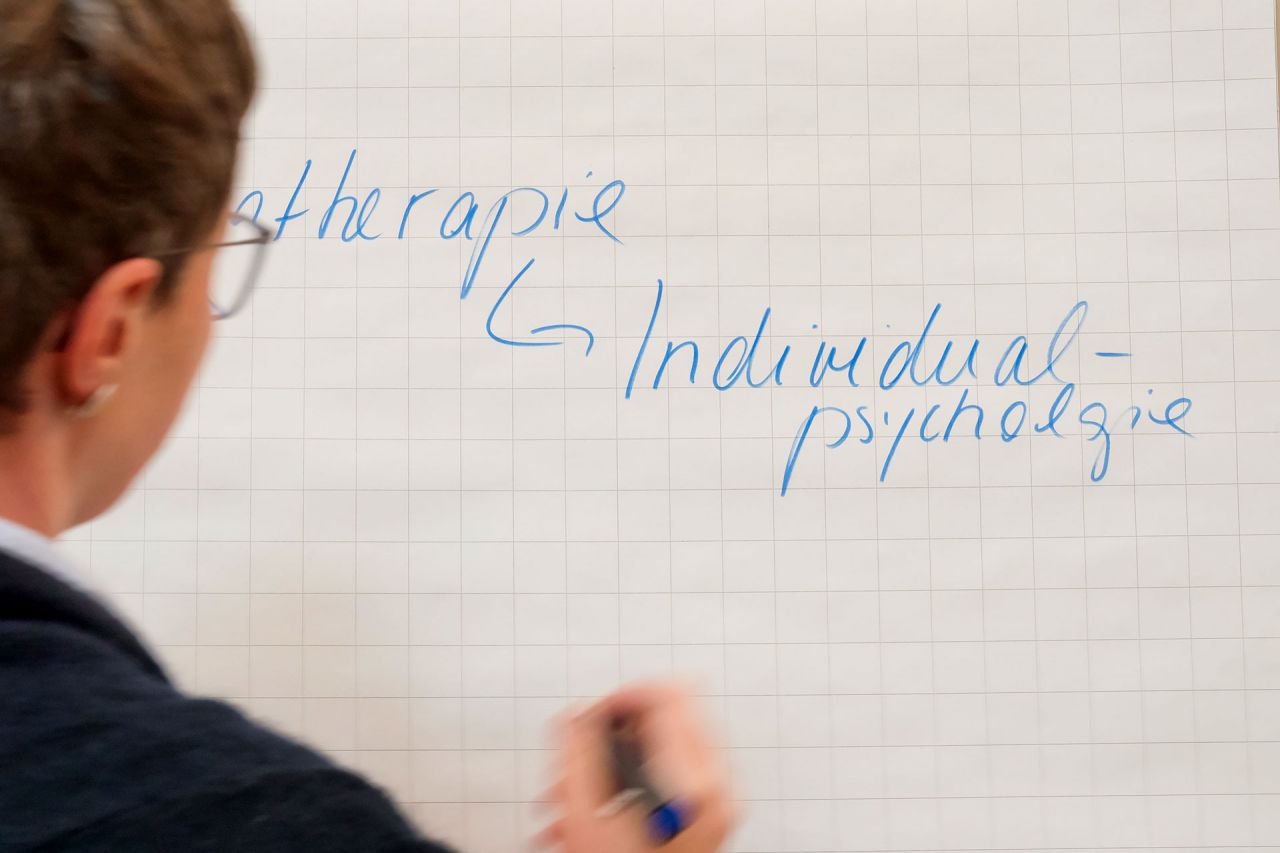 otherapie
Individual-
psycholgie